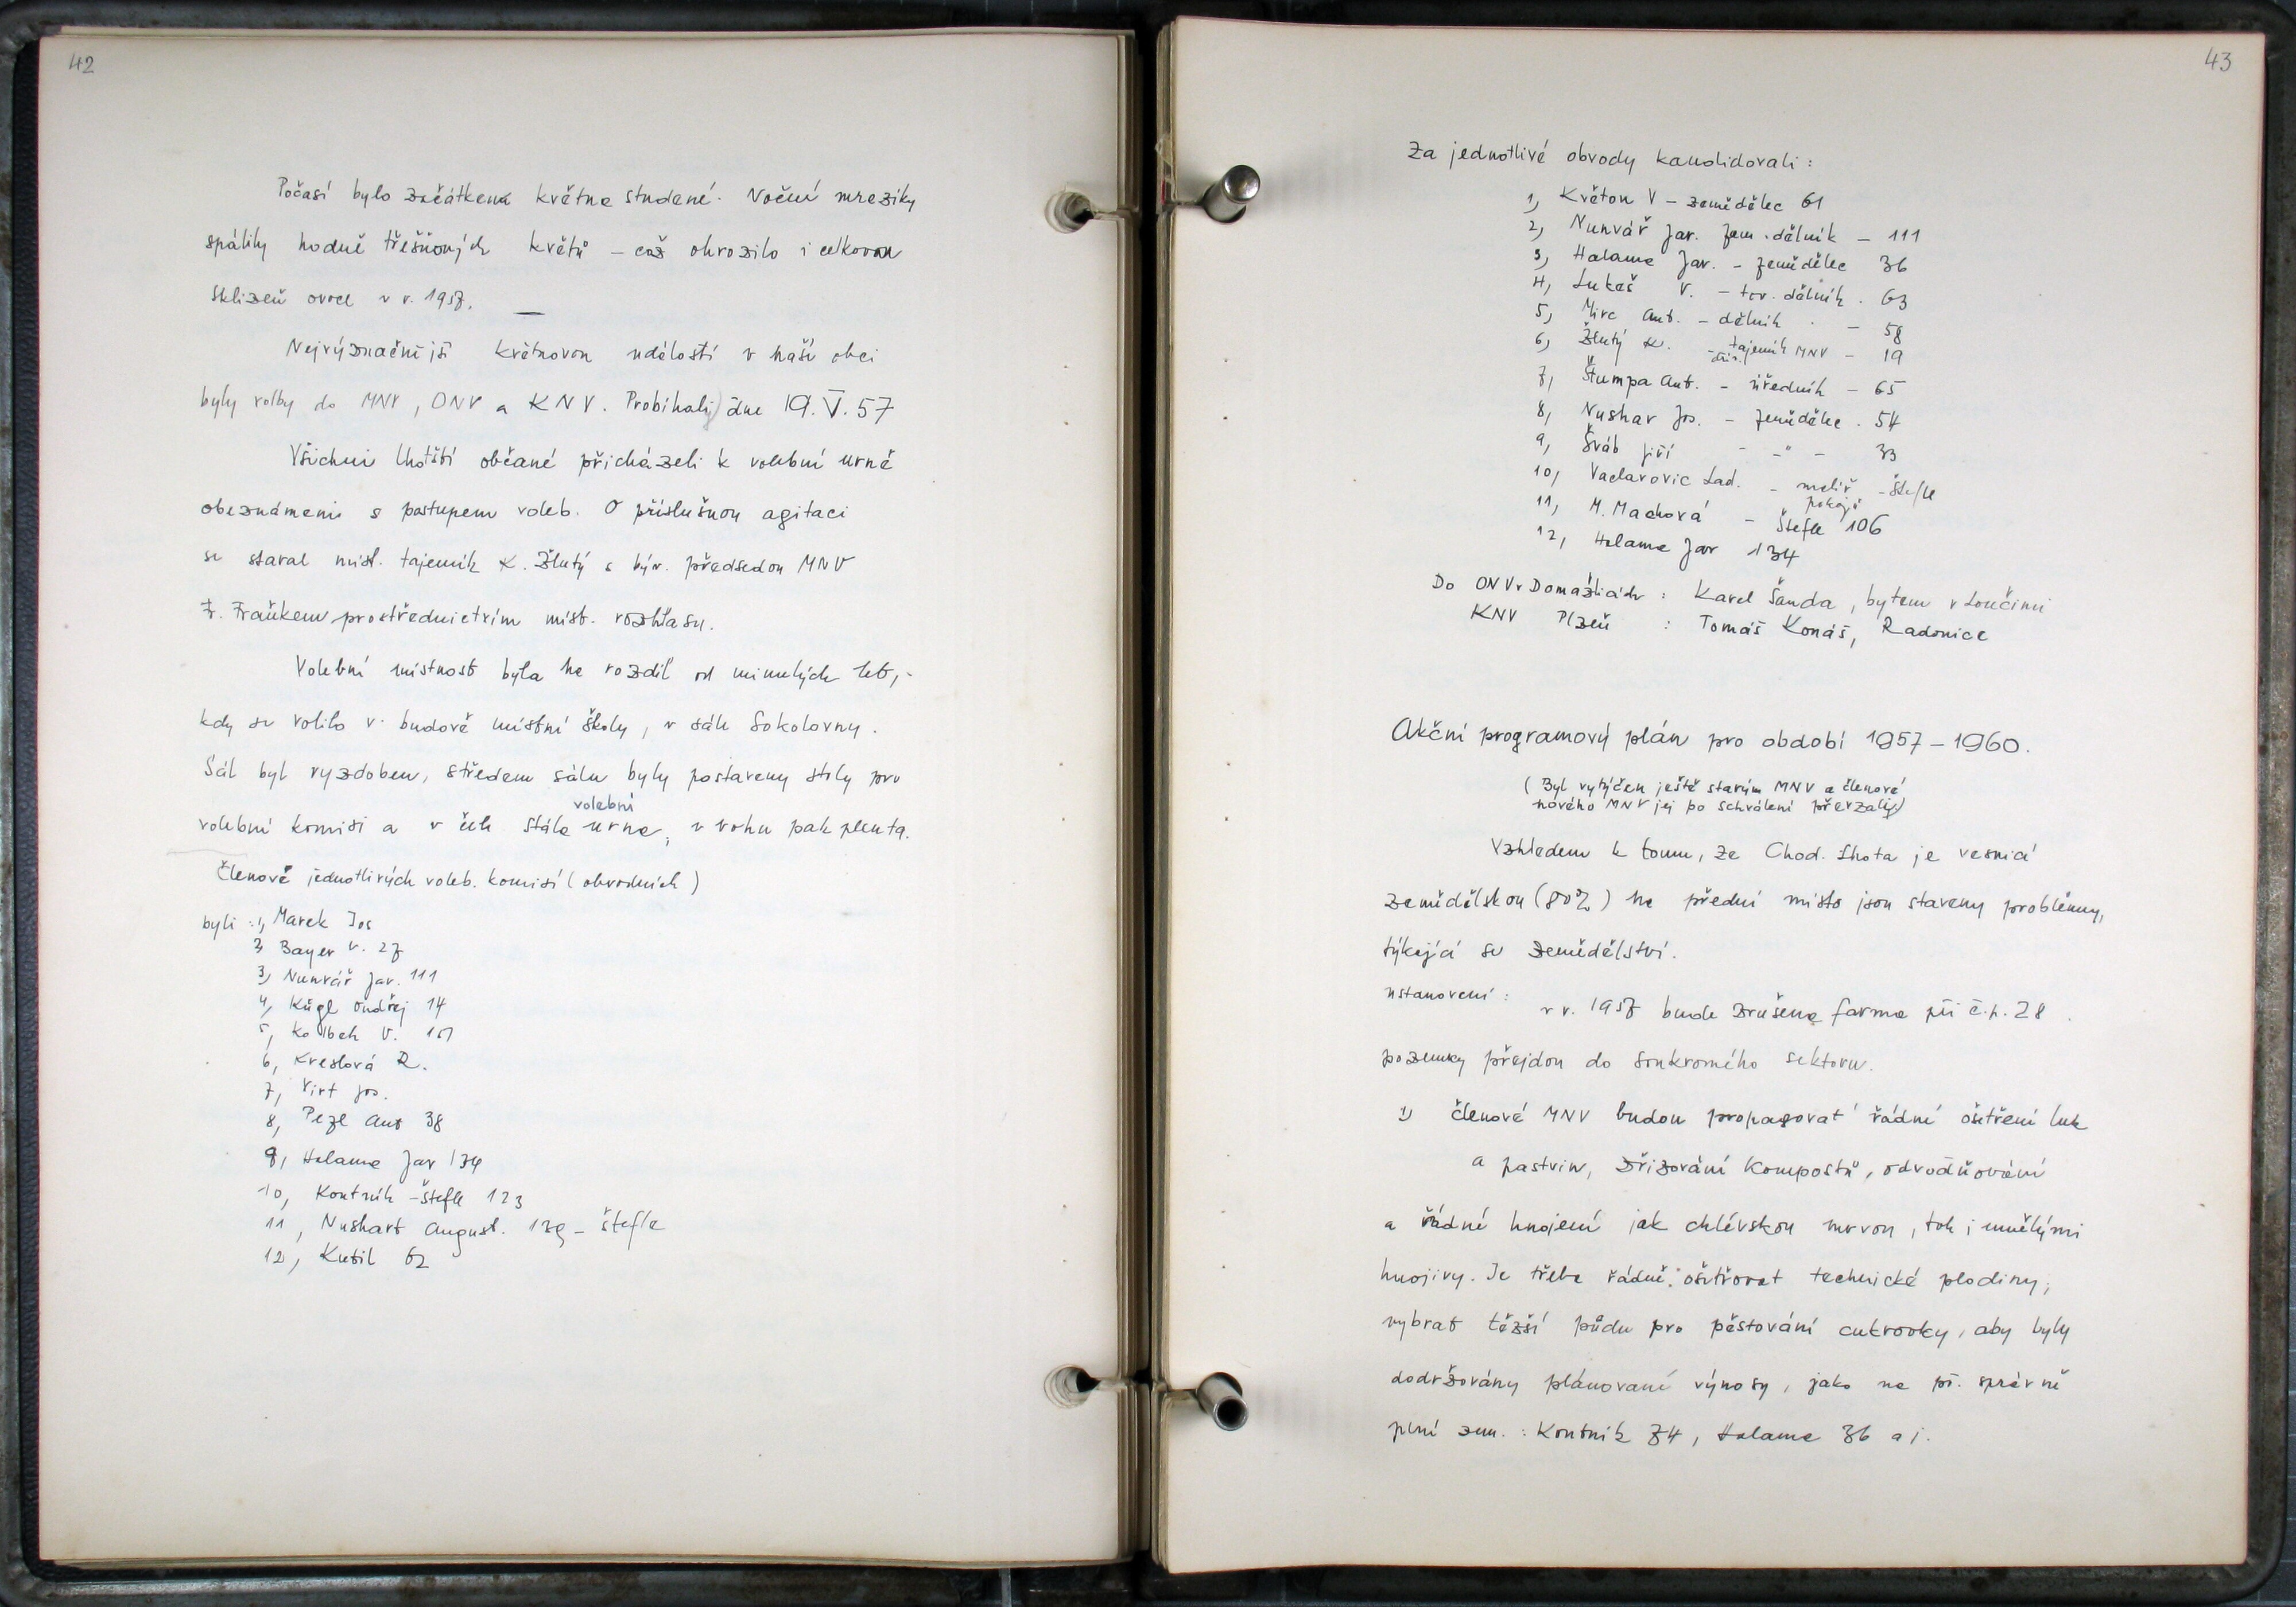 42
Počasí bylo začátkem května studené. Noční mrazíky
spálily hodně třešňových květů – což ohrozilo i celkovou
sklizeň ovoce v r. 1957.
Nejvýznačnější květnovou událostí v naší obci
byly volby do MNV, ONV a KNV. Probíhaly dne 19. V. 57
Všichni lhotští občané přicházeli k volební urně
obeznámeni s postupem voleb. O příslušnou agitaci
se staral míst. tajemník K. Žlutý s býv. předsedou MNV
Fr. Fraňkem prostřednictvím míst. rozhlasu.
Volební místnost byla na rozdíl od minulých let,
kdy se volilo v budově místní školy, v sále Sokolovny.
Sál byl vyzdoben, středem sálu byly postaveny stoly pro
volební komisi a v čele stála volební urna, v rohu pak plenta.
Členové jednotlivých voleb. komisí (obvodních)
byli: 1, Marek Jos
2, Bayer V. 27
3, Nunvář Jar. 111
4, Kügl Ondřej 14
5, Kolbek V.
6, Kreslová R.
7, Virt Jos.
8, Pezl Ant 38
9, Halama Jar 134
10, Kontník – Štefle 123
11, Nushart August. – Štefle
12, Kutil 62
43
Za jednotlivé obvody kandidovali:
1, Květon V – zemědělec 61
2, Nunvář Jar. zem. dělník – 111
3, Halama Jar. – zemědělec 36
4, Lukeš V. – tov. dělník . 63
5, Mirc Ant. – dělník . – 58
6, Žlutý K. – tajemník MNV – 19
7, Štumpa Ant. – úředník – 65
8, Nushar Jos. – zemědělec . 54
9, Šváb Jiří - – " – 33
10, Vaclavovic Lad. – malíř pokojů – Štefle
11, M. Machová – Štefle 106
12, Halama Jar 134
Do ONV v Domažlicích : Karel Šanda, bytem v Loučimi
KNV Plzeň : Tomáš Konáš, Radonice
Akční programový plán pro období 1957 – 1960.
(Byl vytýčen ještě starým MNV a členové
nového MNV jej po schválení převzali)
Vzhledem k tomu, že Chod. Lhota je vesnicí
zemědělskou (80%) na přední místo jsou staveny problémy,
týkající se zemědělství.
ustanovení: v r. 1957 bude zrušena farma při č.p. 28.
pozemky přejdou do soukromého sektoru.
1) členové MNV budou propagovat řádné ošetření luk
a pastvin, zřizování kompostů, odvodňování
a řádné hnojení jak chlévskou mrvou, tak i umělými
hnojivy. Je třeba řádně ošetřovat technické plodiny,
vybrat těžší půdu pro pěstování cukrovky, aby byly
dodržovány plánované výnosy, jako na př. správně
plní zem. : Kontník 74, Halama 36 a j.